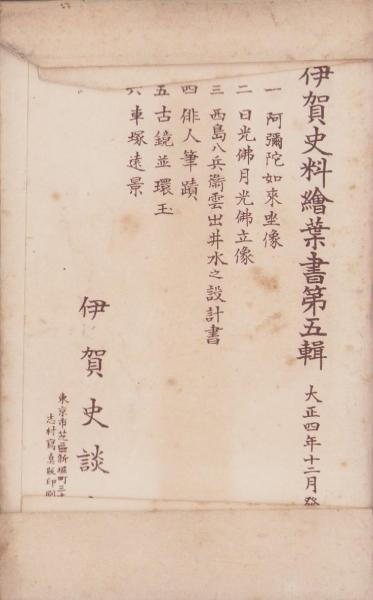 伊賀史料繪葉書第五輯 大正四年十二月發
一 阿彌陀如來坐像
二 日光佛月光佛立像
三 西島八兵衞雲出井水之設計書
四 俳人筆蹟
五 古鏡並環玉
六 車塚遠景
伊賀史談
東京市芝區新堀町三十
志村寫真版印刷